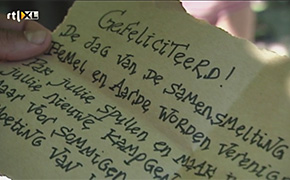 rtl XL
GEFELICITEERD!
DE DAG VAN DE SAMENSMELTING
HEMEL EN AARDE WORDEN VERENIG
PAK JULLIE SPULLEN EN MAAK
JULLIE NIEUWE KAMPGEN
VOOR SOMMIGEN
VAN